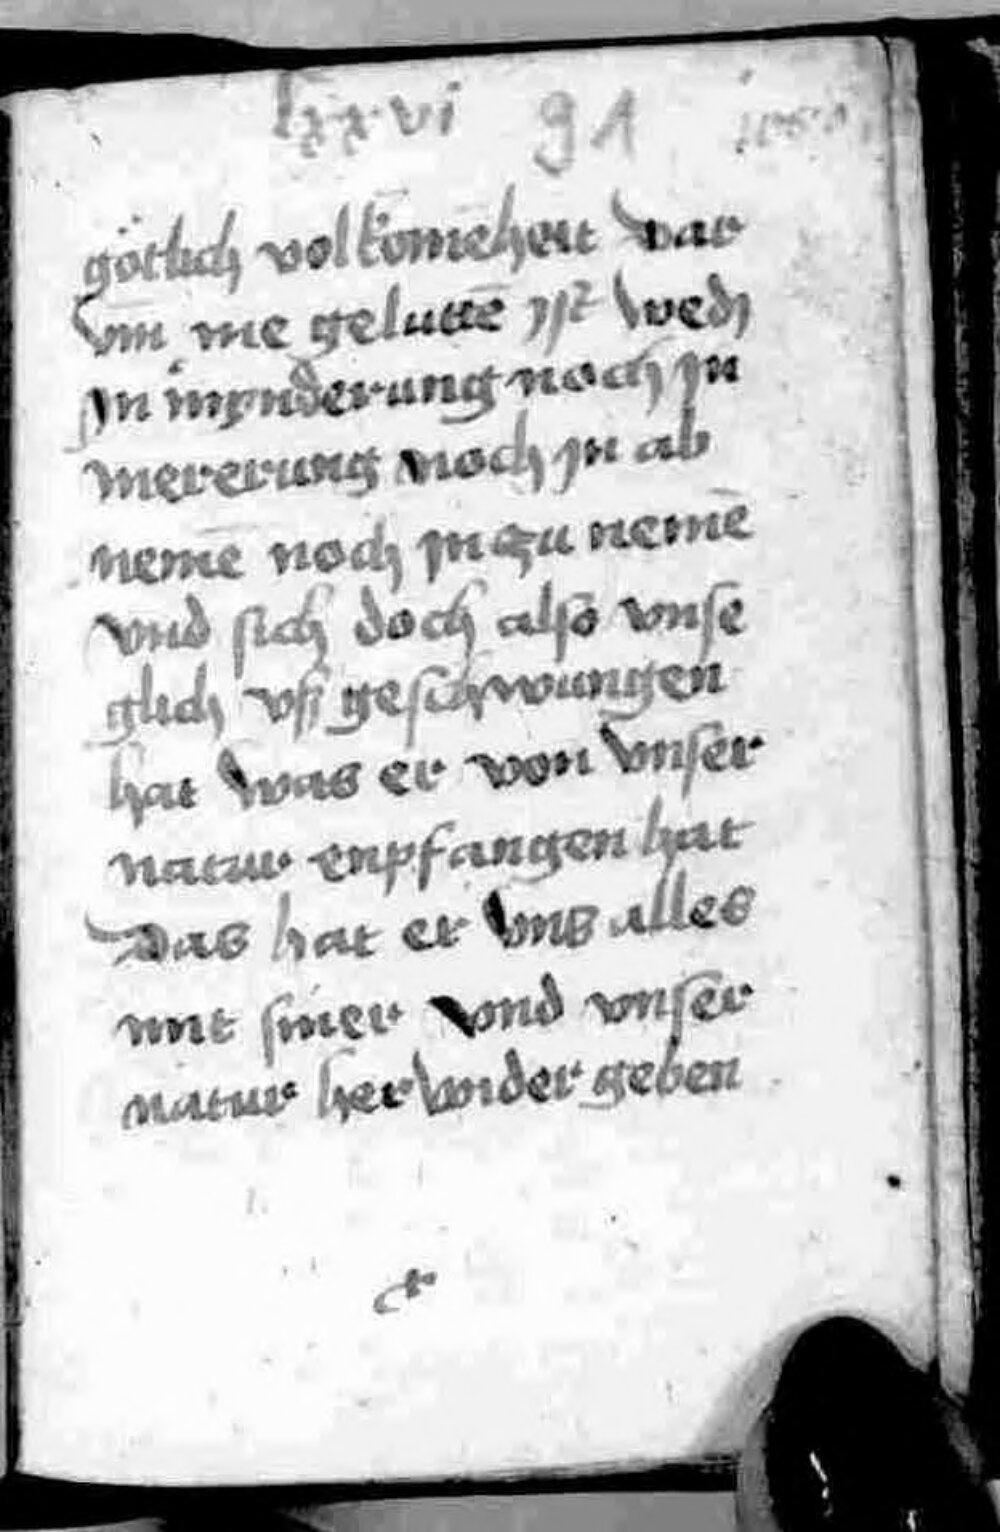 lxxvi 91
götlich volkōmēheit dar
vm̄ nie geluttē jst wedʒ
jn mynderung noch jn
mererung noch jn ab
nemē noch jn zu nemē
vnd sich doch also vnse
glich vff geschwungen
hat was er von vnser
natur enpfangen hat
Das hat er vns alles
mit siner vnd vnser
natur her wider geben